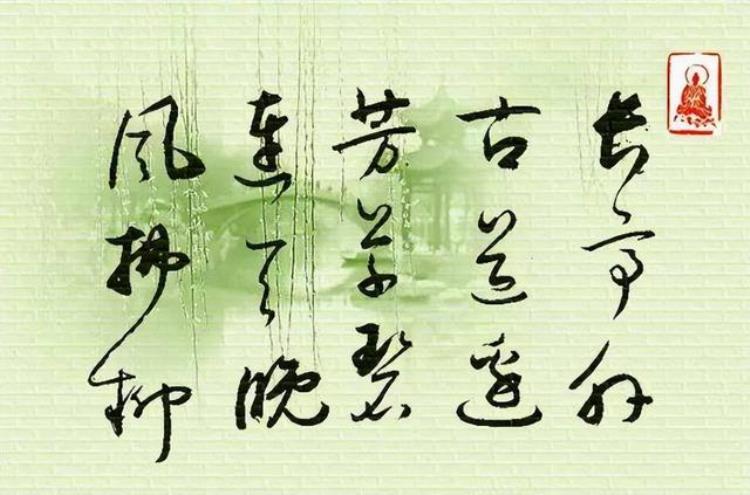 长亭外
古道边
芳草碧
连天晚
风拂柳